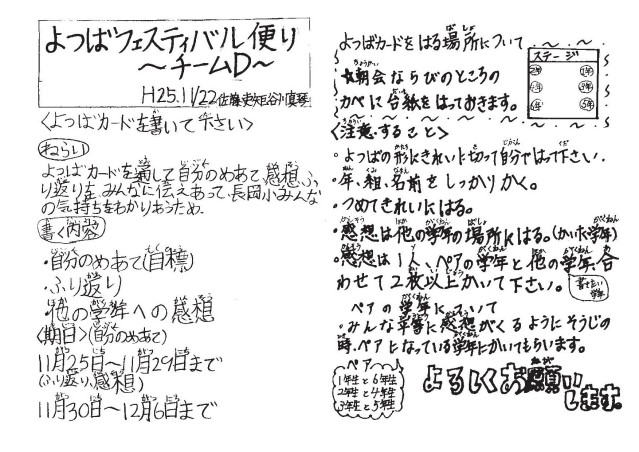 よつばフェスティバル便り
～チームD～
H25.11/22
〈よつばカードを書いて下さい〉
ねらい
よつばカードを通して自分のめあて、感想、ふ
り返りをみんなに伝えあって、長岡小みんな
の気持ちをわかりあうため。
書く内容
・自分のめあて(目標)
・ふり返り
・他の学年への感想
〈期日〉(自分のめあて)
11月25日～11月29日まで
(ふり返り、感想)
11月30日～12月6日まで
よつばカードをはる場所について
朝会ならびのところの
カベに台紙をはっておきます。
ステージ
2年 1年
3年
4年 5年
〈注意すること〉
・よつばの形にきれいに切って自分ではって下さい。
・年、組、名前をしっかりかく。
・つめてきれいにはる。
・感想は他の学年の場所にはる。(かいた学年)
・感想は1人、ペアの学年と他の学年、合
わせて2枚以上かいて下さい。
書きたい学年
ペアの学年について
・みんな平等に感想がくるようにそうじの
時、ペアになっている学年にかいてもらいます。
ペア
1年生と6年生
2年生と4年生
3年生と5年生
よろしくお願い
します。